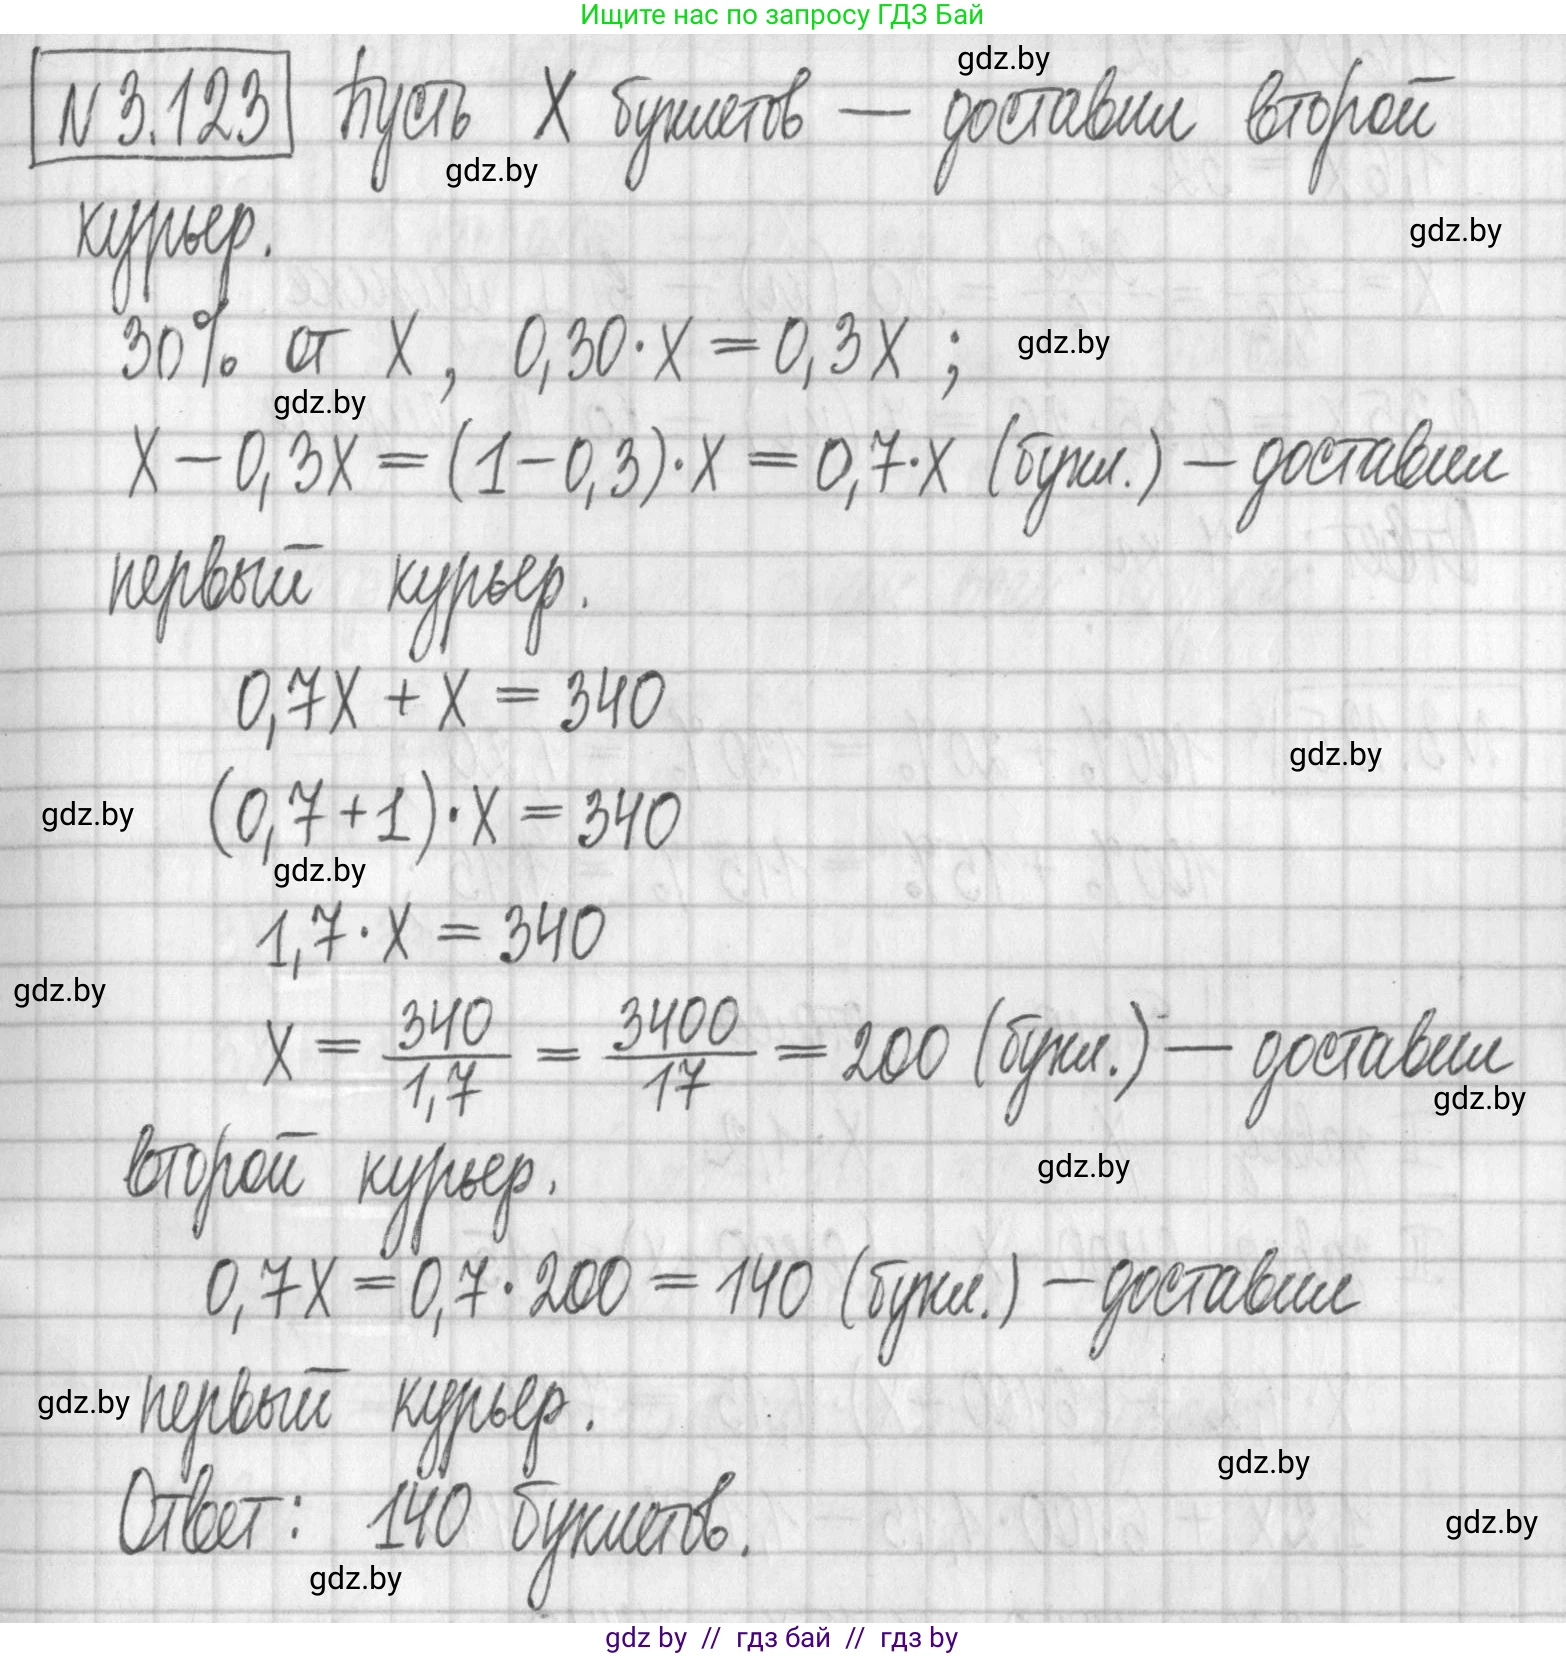 Ищите нас по запросу ГДЗ Бай
gdz.by
N 3.123 Пусть X буклетов — доставил второй
gdz.by
курьер.
gdz.by
30% от X, 0,30·X = 0,3X ;
gdz.by
gdz.by
X − 0,3X = (1 − 0,3)·X = 0,7·X (букл.) — доставил
первый курьер.
0,7X + X = 340
gdz.by
(0,7 + 1)·X = 340
gdz.by
gdz.by
1,7·X = 340
gdz.by
X = 340/1,7 = 3400/17 = 200 (букл.) — доставил
gdz.by
второй курьер.
gdz.by
0,7X = 0,7·200 = 140 (букл.) — доставил
gdz.by
первый курьер.
gdz.by
Ответ: 140 буклетов.
gdz.by
gdz.by
gdz by // гдз бай // гдз by